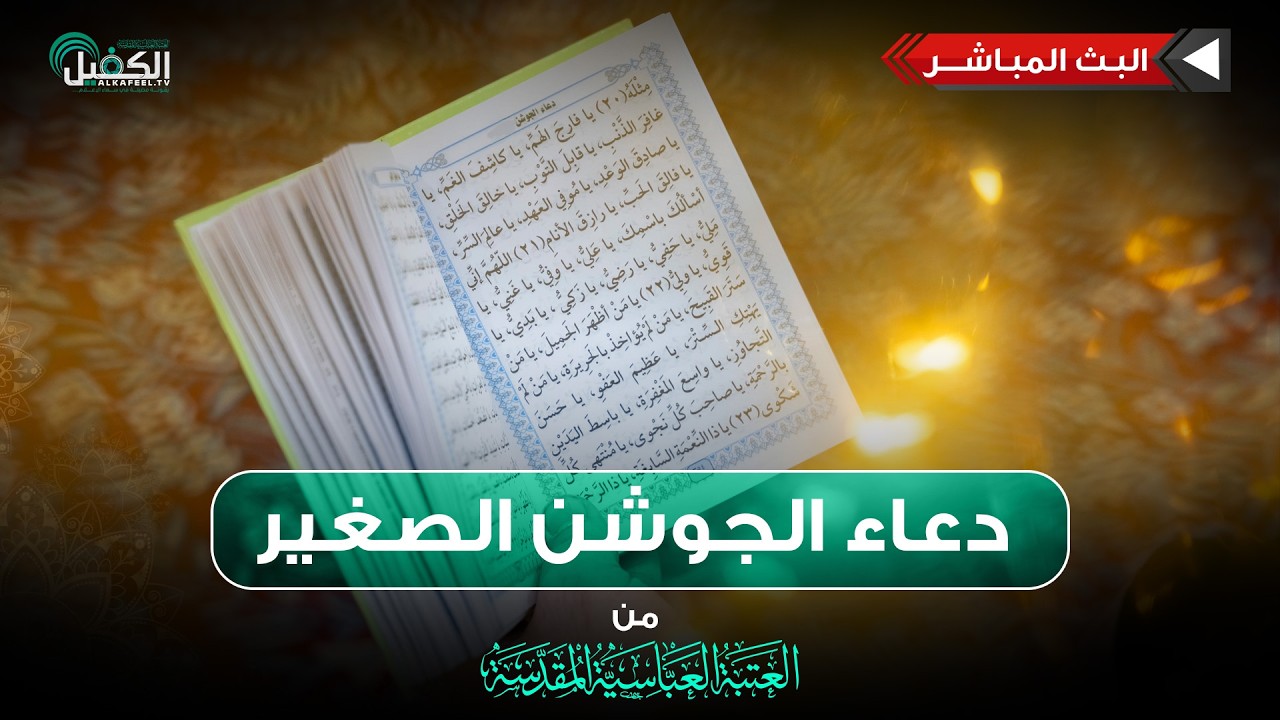 البث المباشر
الكفيل
ALKAFEEL.TV
دعاء الجوشن
مثله (٢٠) يا فارِجَ الهَمِّ، يا كاشِفَ الغَمِّ، يا
غافِرَ الذَّنْبِ، يا قابِلَ التَّوْبِ، يا خالِقَ الخَلْقِ،
يا صادِقَ الوَعْدِ، يا مُوفِيَ العَهْدِ، يا عالِمَ السِّرِّ،
يا فالِقَ الحَبِّ، يا رازِقَ الأَنامِ (٢١) اللّهُمَّ إنّي
أسْألُكَ باسْمِكَ، يا عَليُّ، يا وَفيُّ، يا غَنيُّ، يا
مَليُّ، يا حَفيُّ، يا رَضيُّ، يا زَكيُّ، يا بَديُّ، يا
قَويُّ، يا وَليُّ (٢٢) يا مَنْ أظْهَرَ الجَميلَ، يا مَنْ
سَتَرَ القَبيحَ، يا مَنْ لَمْ يُؤاخِذْ بِالجَريرَةِ، يا مَنْ لَمْ
يَهْتِكِ السِّتْرَ، يا عَظيمَ العَفْوِ، يا حَسَنَ
التَّجاوُزِ، يا واسِعَ المَغْفِرَةِ، يا باسِطَ اليَدَيْنِ
بِالرَّحْمَةِ، يا صاحِبَ كُلِّ نَجْوى، يا مُنْتَهى كُلِّ
شَكْوى (٢٣) يا ذَا النِّعْمَةِ السّابِغَةِ، يا ذَا
دعاء الجوشن الصغير
من
العَتَبَةُ العَبَّاسِيَّةُ المُقَدَّسَةُ